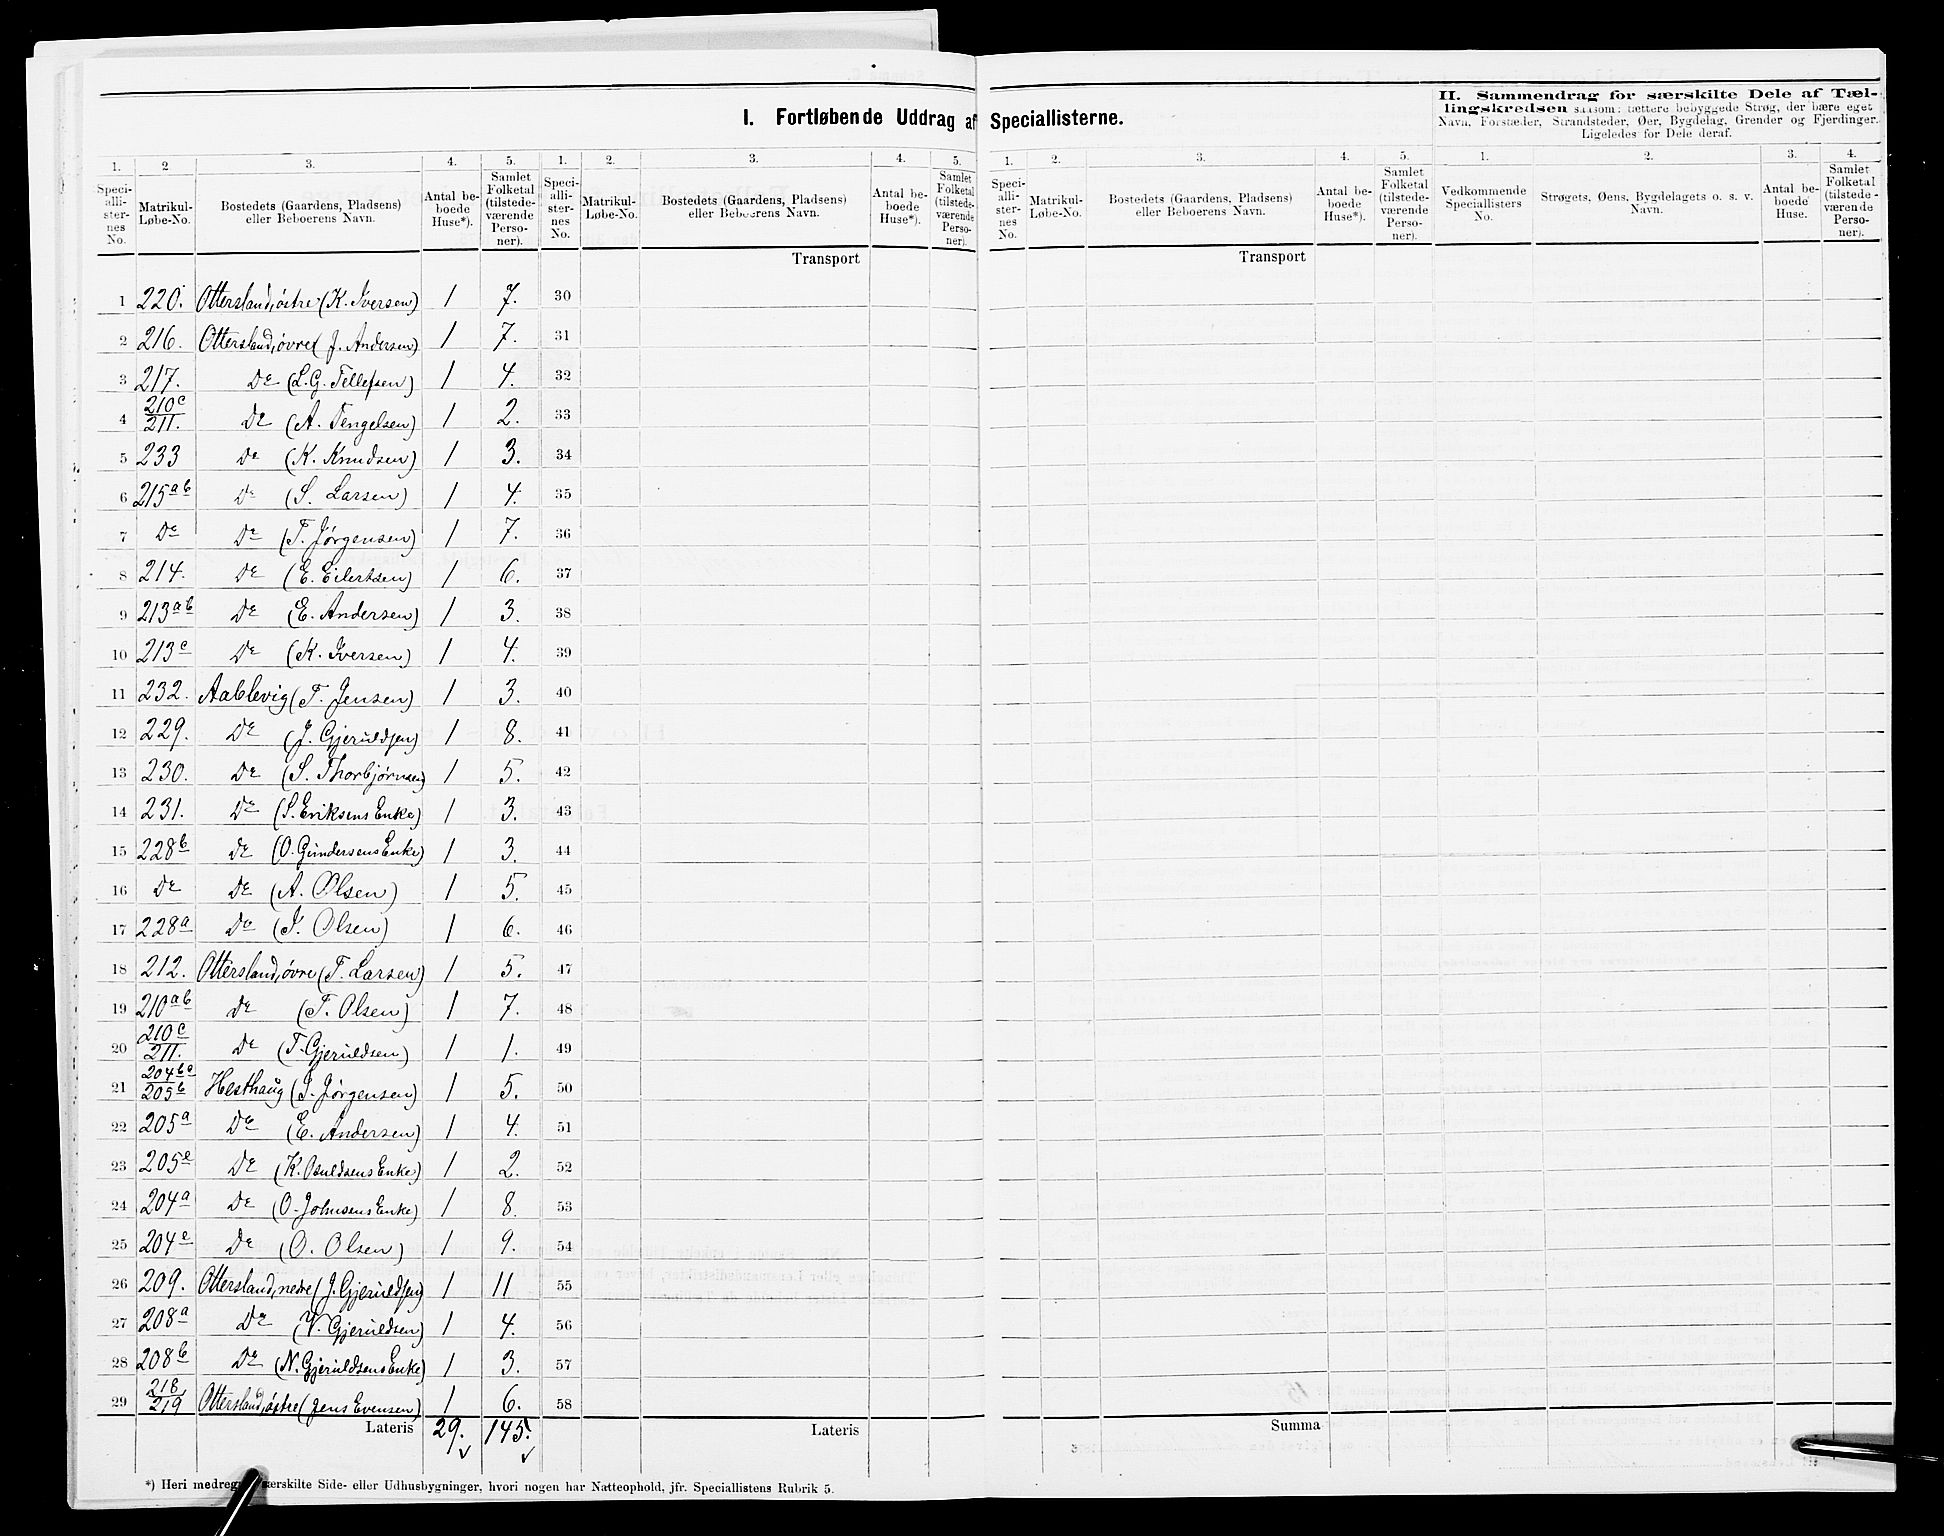 I. Fortløbende Uddrag af Speciallisterne.
II. Sammendrag for særskilte Dele af Tæl-
lingskredsen saasom: tættere bebyggede Strøg, der bære eget
Navn, Forstæder, Strandsteder, Øer, Bygdelag, Grender og Fjerdinger.
Ligeledes for Dele deraf.
1. 2 3. 4. 5. 1. 2. 3. 4. 5. 1. 2. 3. 4. 5. 1. 2. 3. 4.
Speci-alli-ster-nes No. Matrikul-Løbe-No. Bostedets (Gaardens, Pladsens) eller Beboerens Navn. Antal be-boede Huse*). Samlet Folketal (tilstede-værende Perso-ner). Speci-alli-ster-nes No. Matrikul-Løbe-No. Bostedets (Gaardens, Pladsens) eller Beboerens Navn. Antal be-boede Huse*). Samlet Folketal (tilstede-værende Perso-ner).
Speci-alli-ster-nes No. Matrikul-Løbe-No. Bostedets (Gaardens, Pladsens) eller Beboerens Navn. Antal be-boede Huse*). Samlet Folketal (tilstede-værende Perso-ner). Vedkommende Speciallisters No. Strøgets, Øens, Bygdelagets o. s. v. Navn. Antal be-boede Huse. Samlet Folketal (tilstede-værende Perso-ner).
Transport Transport
1 220. Ottersland, østre (K. Iversen) 1 7. 30
2 216. Ottersland, øvre (J. Andersen) 1 7. 31
3 217. Do (L. G. Tellefsen) 1 4. 32
4 210c/211. Do (A. Tengelsen) 1 2. 33
5 233 Do (K. Knudsen) 1 3. 34
6 215ab Do (S. Larsen) 1 4. 35
7 Do Do (T. Jørgensen) 1 7. 36
8 214. Do (E. Eilertsen) 1 6. 37
9 213ab Do (E. Andersen) 1 3. 38
10 213c Do (K. Iversen) 1 4. 39
11 232. Aablevig (T. Jensen) 1 3. 40
12 229. Do (J. Gjeruldsen) 1 8. 41
13 230. Do (S. Thorbjørnsen) 1 5. 42
14 231. Do (S. Eriksens Enke) 1 3. 43
15 228b Do (O. Gundersens Enke) 1 3. 44
16 Do Do (A. Olsen) 1 5. 45
17 228a Do (J. Olsen) 1 6. 46
18 212. Ottersland, øvre (T. Larsen) 1 5. 47
19 210ab Do (T. Olsen) 1 7. 48
20 210c/211. Do (T. Gjeruldsen) 1 1. 49
21 204bc/205b Hesthaug (S. Jørgensen) 1 5. 50
22 205a Do (E. Andersen) 1 4. 51
23 205e Do (K. Osuldsens Enke) 1 2. 52
24 204a Do (O. Johnsens Enke) 1 8. 53
25 204e Do (O. Olsen) 1 9. 54
26 209. Ottersland, nedre (J. Gjeruldsen) 1 11 55
27 208a Do (V. Gjeruldsen) 1 4. 56
28 208b Do (N. Gjeruldsens Enke) 1 3. 57
29 218/219 Ottersland, østre (Jens Evensen) 1 6. 58
Lateris 29. 145. Lateris Summa
*) Heri medregnes særskilte Side- eller Udhusbygninger, hvori nogen har Natteophold, jfr. Speciallistens Rubrik 5.